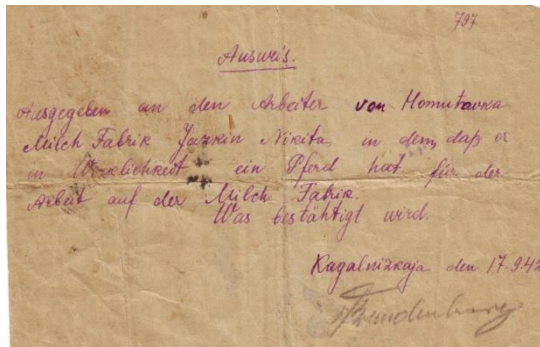 797
Ausweis.
Ausgegeben an den Arbeiter von Homutowka
Milch Fabrik Jazkin Nikita in dem, daß er
in Wirklichkeit ein Pferd hat für der
Arbeit auf der Milch Fabrik.
Was bestähtigt wird.
Kagalnizkaja den 17.9.42